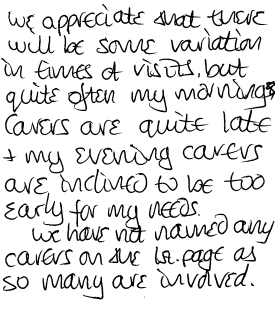 we appreciate that there
will be some variation
in times of visits, but
quite often my mornings
carers are quite late
+ my evening carers
are inclined to be too
early for my needs.
we have not named any
carers on the 1st. page as
so many are involved.